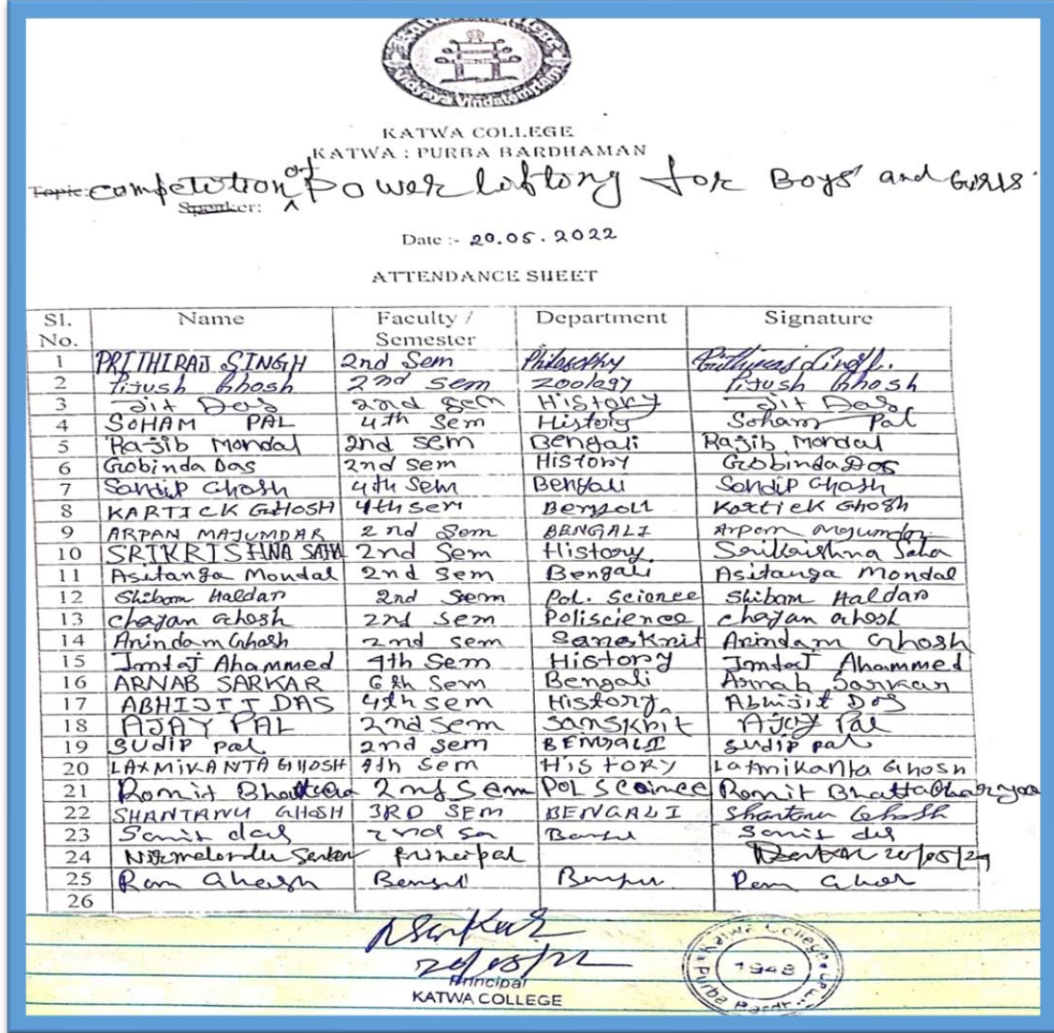 Vidyaya Vindatemritam
KATWA COLLEGE
KATWA : PURBA BARDHAMAN
Topic: competition of Power lifting for Boys and Girls
Speaker:
Date :- 20.05.2022
ATTENDANCE SHEET
Sl. No. Name Faculty / Semester Department Signature
1 PRITHIRAJ SINGH 2nd Sem Philosophy
2 Pijush Ghosh 2nd sem Zoology Pijush Ghosh
3 Jit Das 2nd Sem History Jit Das
4 SOHAM PAL 4th Sem History Soham Pal
5 Rajib Mondal 2nd sem Bengali Rajib Mondal
6 Gobinda Das 2nd Sem History Gobinda Das
7 Sandip Ghosh 4th Sem Bengali Sandip Ghosh
8 KARTICK GHOSH 4th sem Kartick Ghosh
9 ARPAN MAJUMDAR 2nd Sem BENGALI Arpan Majumdar
10 SRIKRISHNA SAHA 2nd Sem History Srikrishna Saha
11 Asitanga Mondal 2nd Sem Bengali Asitanga Mondal
12 Shibam Haldar 2nd Sem Pol. Science Shibam Haldar
13 chayan Ghosh 2nd Sem Poliscience chayan Ghosh
14 Anindam Ghosh 2nd sem Sanskrit Anindam Ghosh
15 Imtaj Ahammed 4th Sem History Imtaj Ahammed
16 ARNAB SARKAR 6th Sem Bengali Arnab Sarkar
17 ABHIJIT DAS 4th sem History Abhijit Das
18 AJAY PAL 2nd Sem Sanskrit Ajay Pal
19 Sudip pal 2nd Sem BENGALI Sudip pal
20 LAXMIKANTA GHOSH 4th Sem HISTORY Laxmikanta Ghosh
21 Romit 2nd Sem Pol Romit Bhattacharyya
22 SHANTANU GHOSH 3RD SEM BENGALI Shantanu Ghosh
23 2nd
24 Principal
25
26
NSarkar
20/05/22
Principal
KATWA COLLEGE
Katwa College
1948
Purba Bardhaman